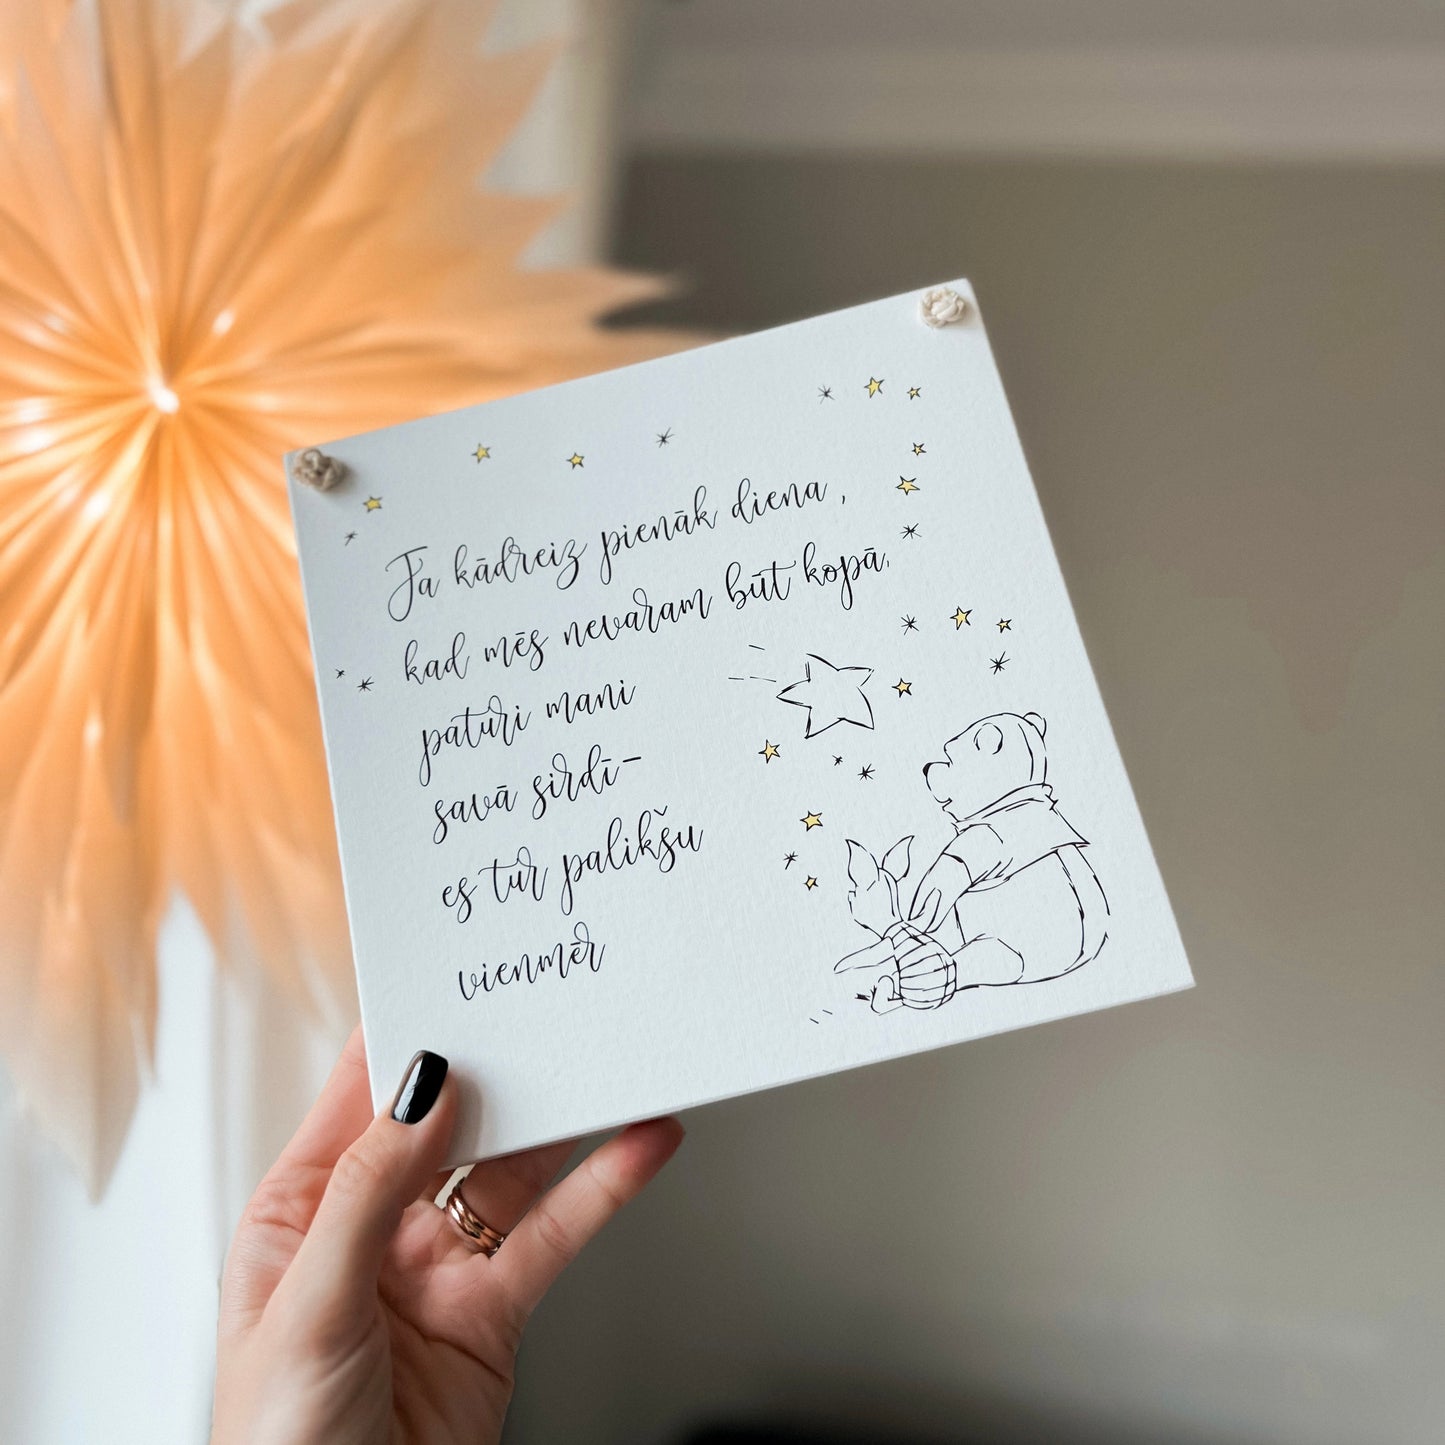 Ja kādreiz pienāk diena,
kad mēs nevaram būt kopā,
paturi mani
savā sirdī-
es tur palikšu
vienmēr